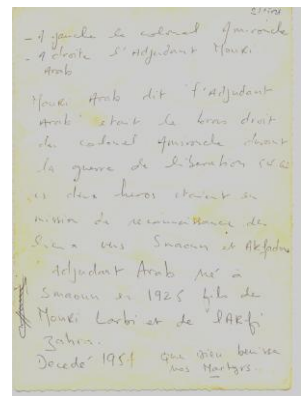 - A gauche le colonel Amirouche
- A droite l'Adjudant Mouri
Arab
Mouri Arab dit l'Adjudant
Arab était le bras droit
du colonel Amirouche durant
la guerre de libération
ces deux heros etaient en
mission de reconnaissance de
vers Smaoun et Akfadou
Adjudant Arab né à
Smaoun en 1925 fils de
Mouri Larbi et de LARfi
Zahra.
Decedé 195 que Dieu benisse
nos Martyrs.